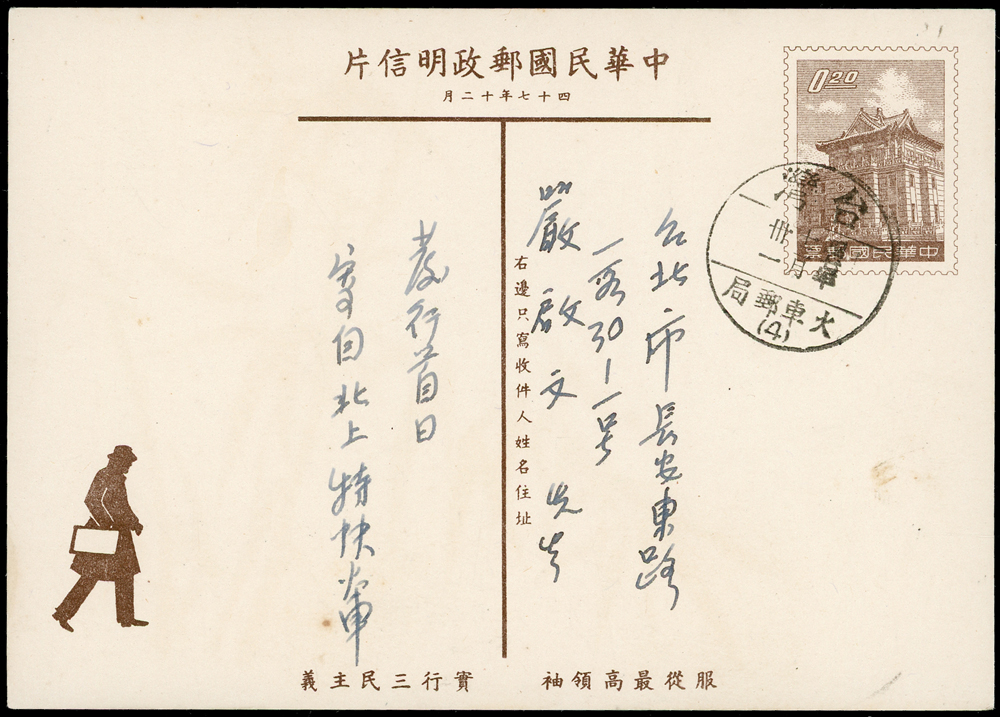 中華民國郵政明信片
四十七年十二月
0.20
中華民國郵票
台灣
卅一月
火車郵局
(4)
台北市長安東路
一段30-1号
嚴啟文 先生
右邊只寫收件人姓名住址
發行首日
寄自北上特快火車
服從最高領袖
實行三民主義